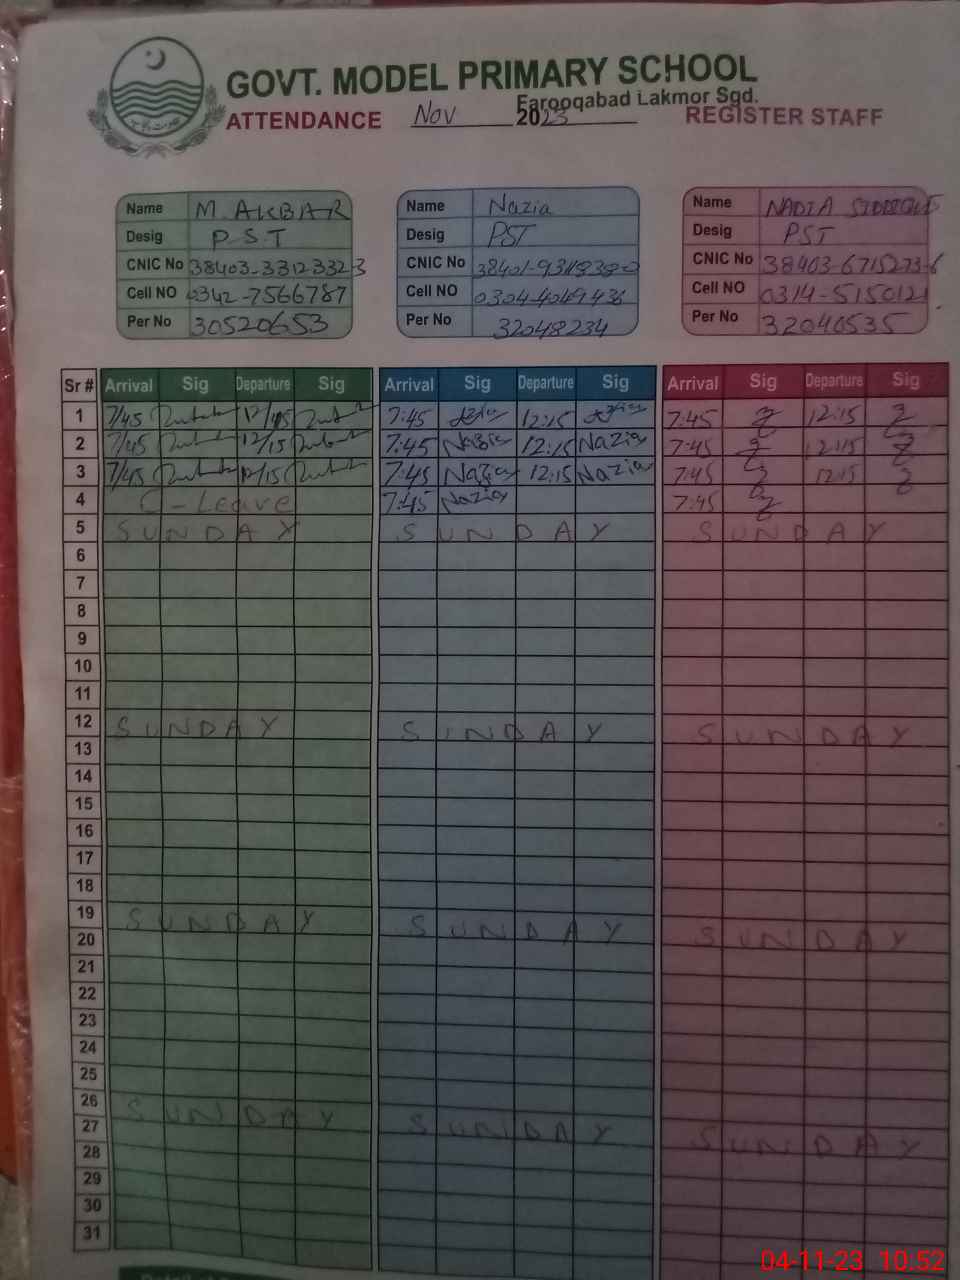 GOVT. MODEL PRIMARY SCHOOL
Farooqabad Lakmor Sgd.
ATTENDANCE Nov 2023 REGISTER STAFF
Name M. AKBAR Name Nazia Name NADIA
Desig P S T Desig PST Desig PST
CNIC No 38403-3312332-3 CNIC No CNIC No 38403-6715273-6
Cell NO 0342-7566787 Cell NO 0304-4049436 Cell NO 0314-5150121
Per No 30520653 Per No 32048234 Per No 32040535
Sr # Arrival Sig Departure Sig Arrival Sig Departure Sig Arrival Sig Departure Sig
1 7/45 12/15 7:45 12:15 7:45 12:15
2 7/45 12/15 7:45 Nazia 12:15 Nazia 7:45 12:15
3 7/45 12/15 7:45 Nazia 12:15 Nazia 7:45 12:15
4 C-Leave 7:45 Nazia 7:45
5 SUNDAY SUNDAY SUNDAY
6
7
8
9
10
11
12 SUNDAY SUNDAY SUNDAY
13
14
15
16
17
18
19 SUNDAY SUNDAY SUNDAY
20
21
22
23
24
25
26 SUNDAY SUNDAY SUNDAY
27
28
29
30
31
04-11-23 10:52